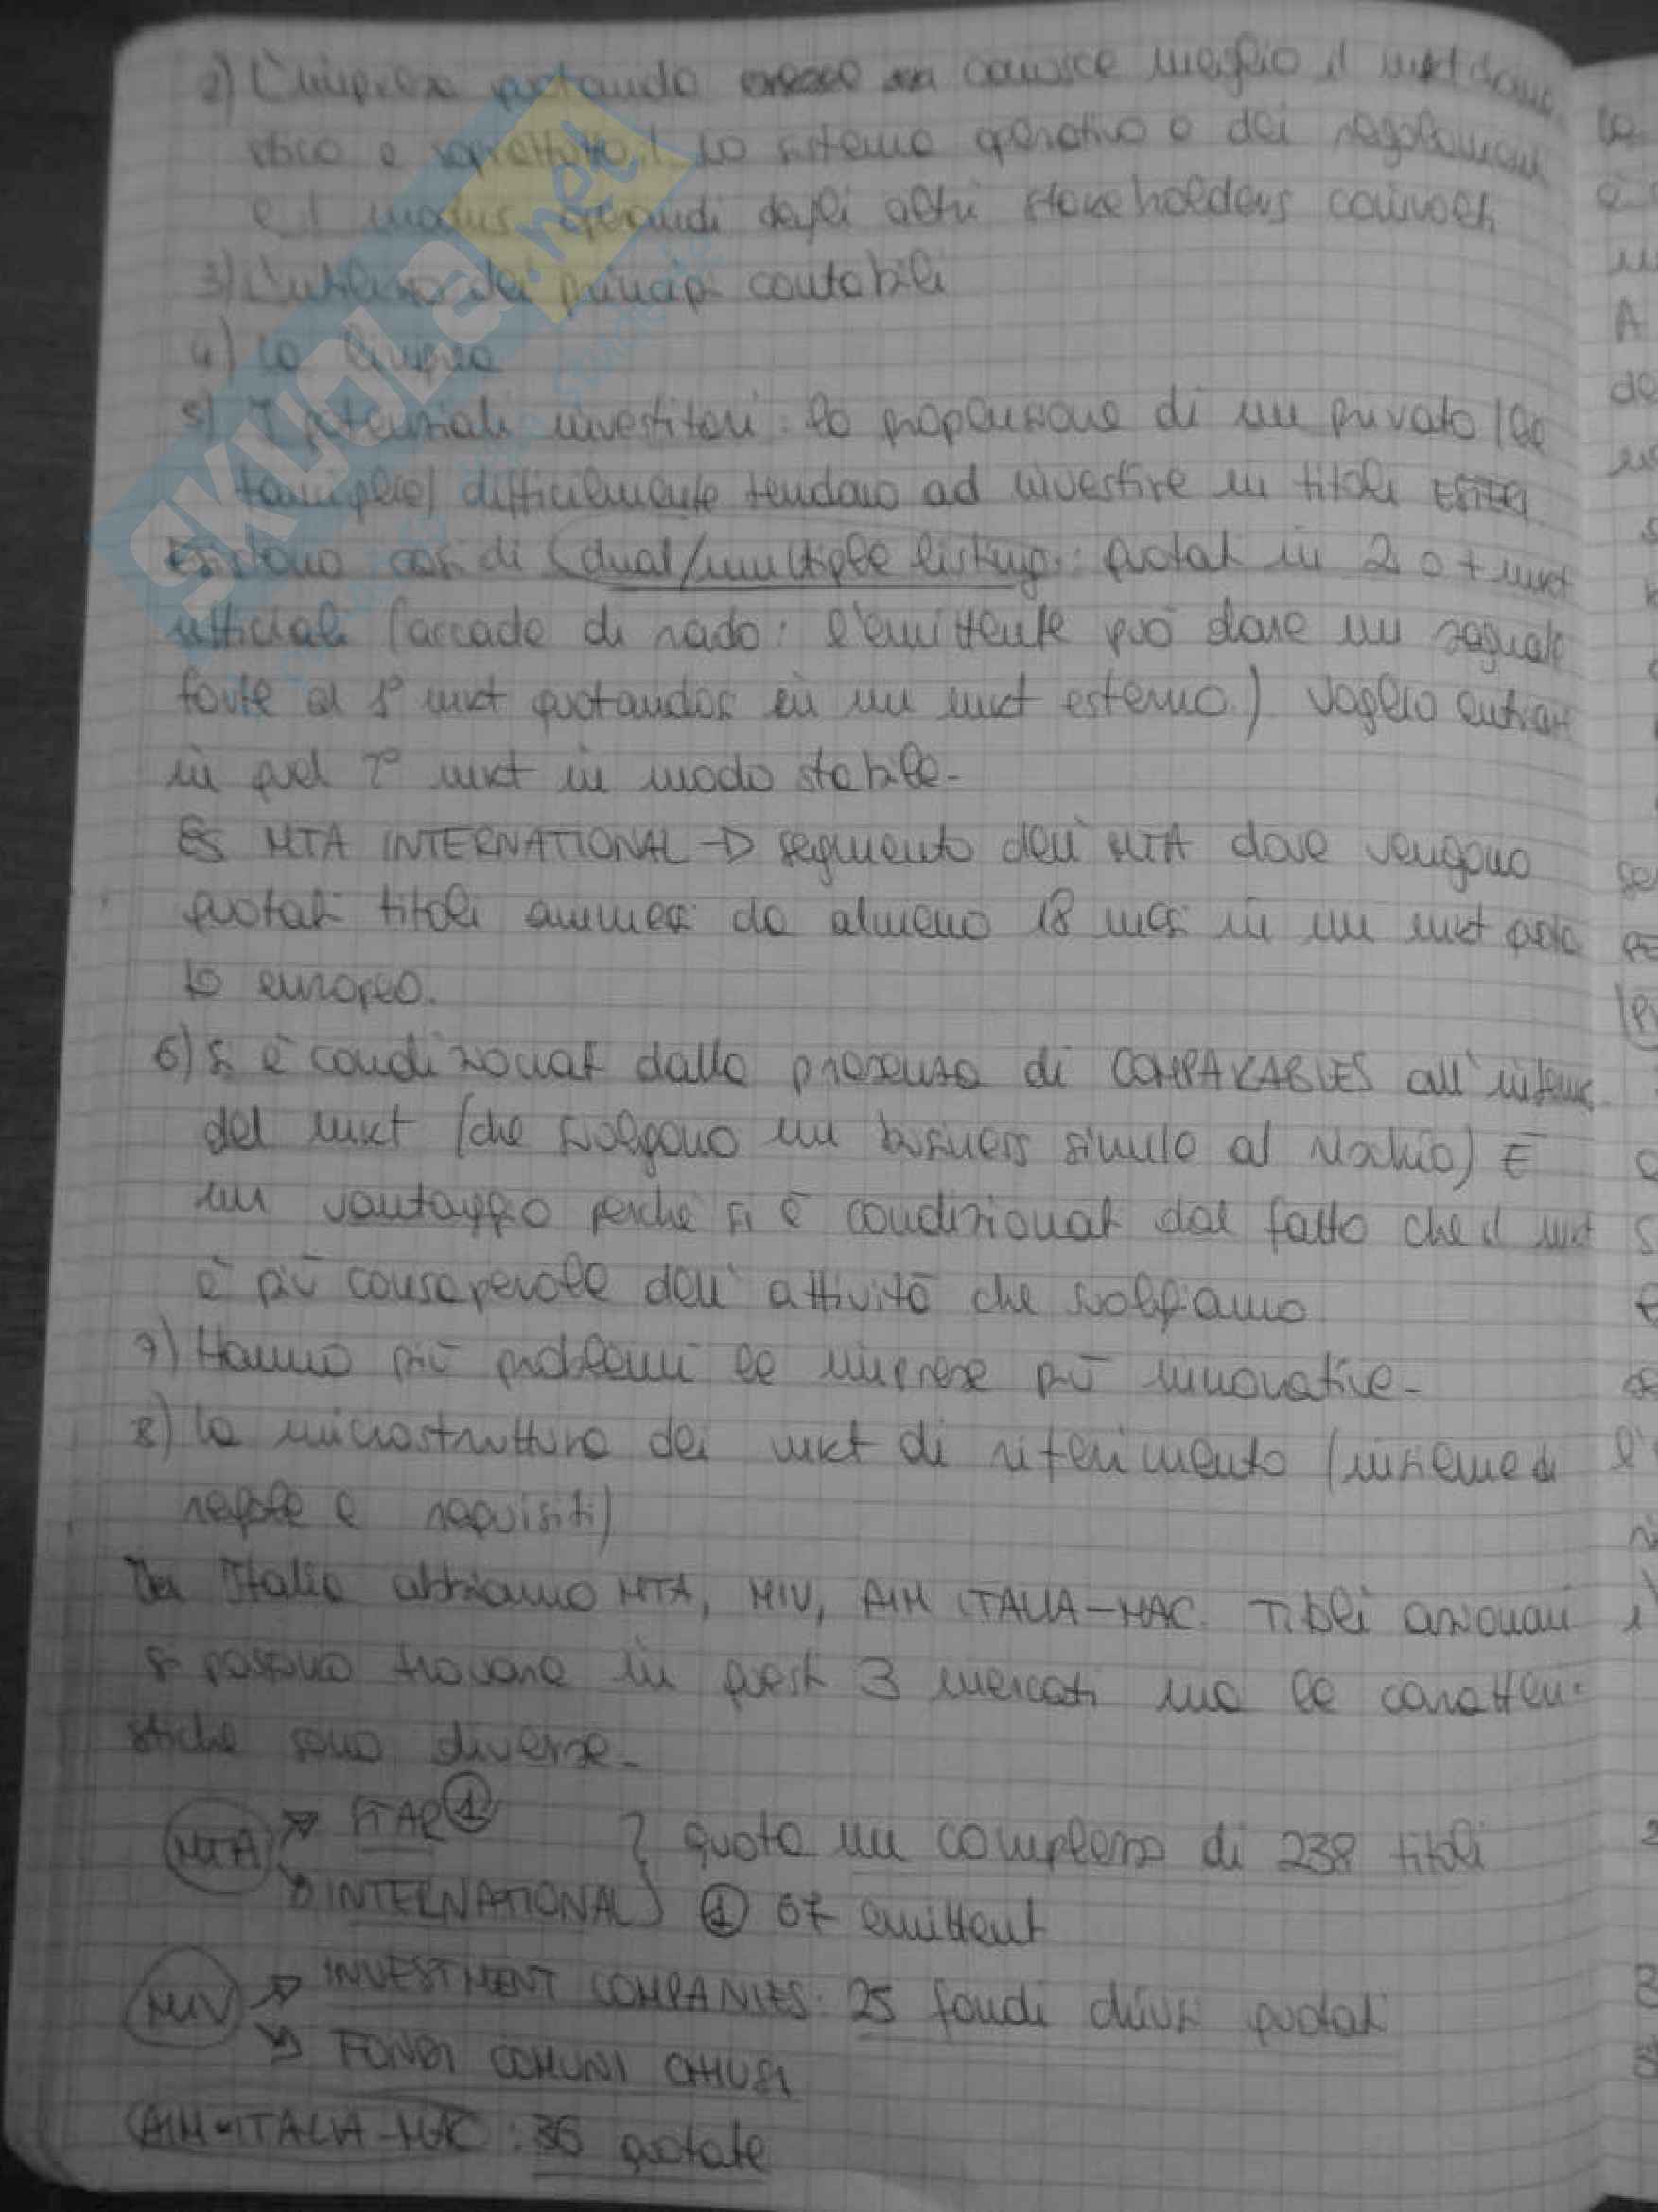 2) L'impresa quotando conosce meglio il mkt dome
stico e soprattutto il so sistema operativo e dei regolamenti
e il modus operandi degli altri stakeholders coinvolti
3) L'utilizzo dei principi contabili
4) la lingua
5) I potenziali investitori: la propensione di un privato (le
famiglie) difficilmente tendono ad investire in titoli ESTERI
Esistono casi di (dual/multiple listing: quotati in 2 o + mkt
ufficiali (accade di rado: l'emittente può dare un segnale
forte al 1° mkt quotandosi in un mkt esterno.) Voglio entrare
in quel 2° mkt in modo stabile-
Es MTA INTERNATIONAL → segmento dell'MTA dove vengono
quotati titoli ammessi da almeno 18 mesi in un mkt quota
to europeo.
6) Si è condizionati dalla presenza di COMPARABLES all'interno
del mkt (che svolgono un business simile al rischio) È
un vantaggio perchè si è condizionati dal fatto che il mkt
è più consapevole dell'attività che svolgiamo
7) Hanno più problemi le imprese più innovative-
8) la microstruttura dei mkt di riferimento (insieme di
regole e requisiti)
In Italia abbiamo MTA, MIV, AIM ITALIA-MAC. Titoli azionari
si possono trovare in questi 3 mercati ma le caratteri-
stiche sono diverse-
MTA → STAR ① } quota un complesso di 238 titoli
→ INTERNATIONAL } ① 67 emittenti
MIV → INVESTMENT COMPANIES: 25 fondi chiusi quotati
→ FONDI COMUNI CHIUSI
AIM-ITALIA-MAC: 36 quotate
SKUOLA.net